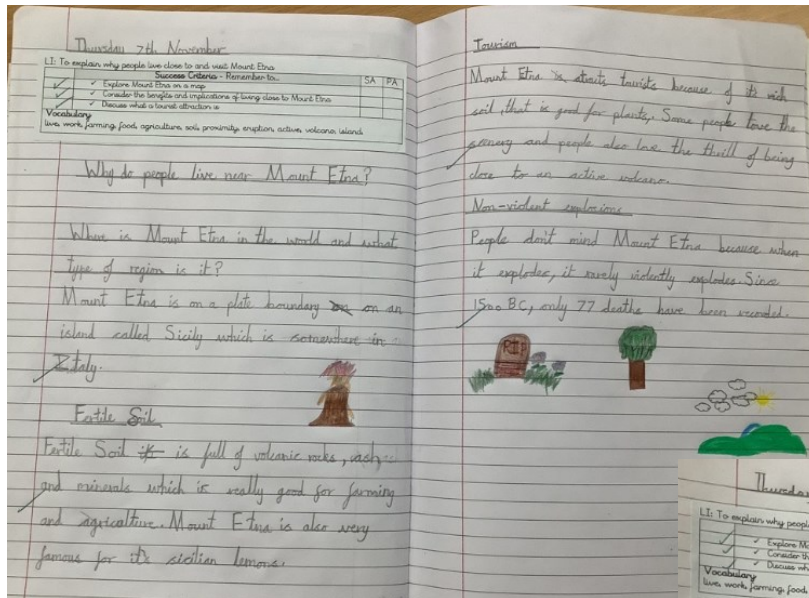 Thursday 7th November
LI: To explain why people live close to and visit Mount Etna
Success Criteria - Remember to... SA PA
✓ Explore Mount Etna on a map
✓ Consider the benefits and implications of living close to Mount Etna
✓ Discuss what a tourist attraction is
Vocabulary
live, work, farming, food, agriculture, soil, proximity, eruption, active, volcano, island
Why do people live near Mount Etna?
Where is Mount Etna in the world and what
type of region is it?
Mount Etna is on a plate boundary on an
island called Sicily which is somewhere in
Italy.
Fertile Soil
Fertile Soil is full of volcanic rocks, ash
and minerals which is really good for farming
and agriculture. Mount Etna is also very
famous for it's sicilian lemons.
Tourism
Mount Etna tourists because of its rich
soil, that is good for plants. Some people love the
scenery and people also love the thrill of being
close to an active volcano.
Non-violent explosions
People don't mind Mount Etna because when
it explodes, it rarely violently explodes. Since
1500 BC, only 77 deaths have been recorded.
RIP
Thursda
LI: To explain why peopl
✓ Explore M
✓ Consider th
✓ Discuss wh
Vocabulary
live, work, farming, food,